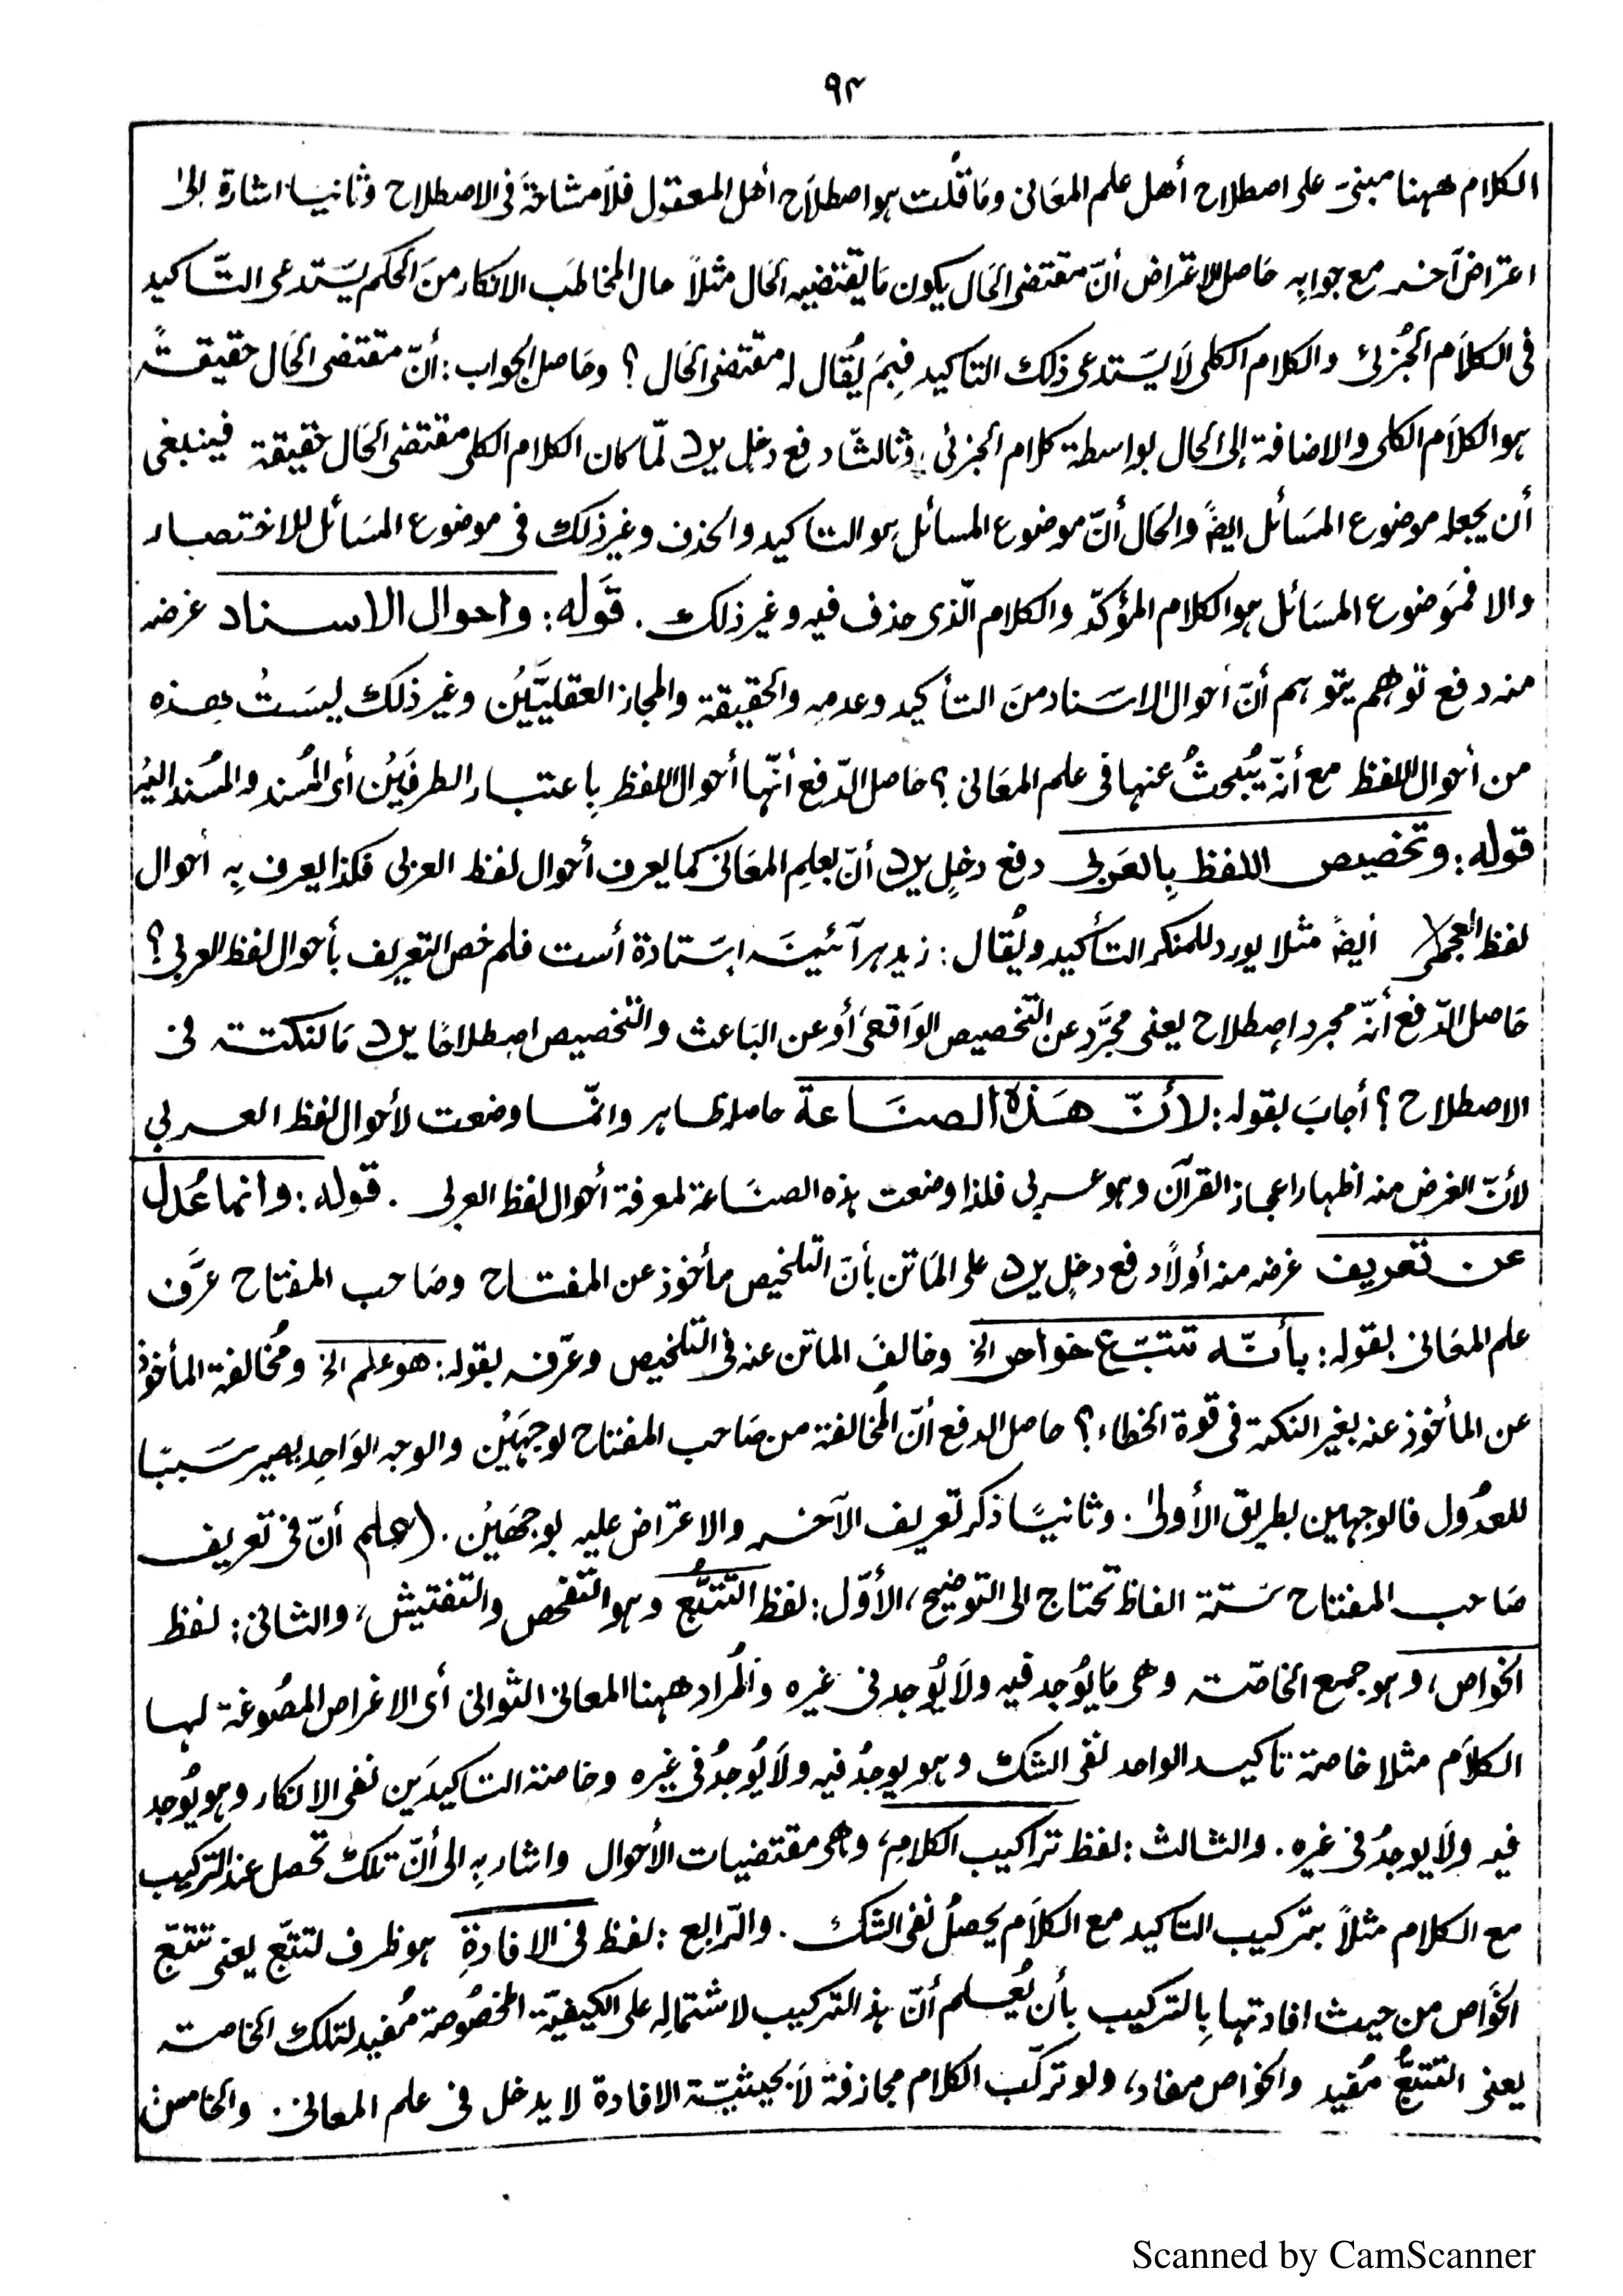 ٩٣
الكلام ههنا مبنيٌ على اصطلاح أهل علم المعَانى ومَا قُلت هو اصطلاَح أهل المعقول فلاَ مشاحَة فى الاصطلاح وثانيا اشارة إلىٰ
اعتراض آخر مع جوابه حَاصل الاعتراض أنّ مقتضى الحَال يكون مَا يقتضيه الحَال مثلاً حال المخاطَب الانكار منَ الحكم يَستدعى التّاكيد
فى الكلاَم الجُزئى والكلام الكلى لاَ يَستدعى ذلك التاكيد فبِمَ يُقال له مقتضى الحَال ؟ وحَاصل الجواب : أنّ مقتضى الحَال حقيقةً
هو الكلاَم الكلى والاضافة إلى الحال بواسطة كلام الجزئى ، وثالثًا دفع دخل يرد لمّا كان الكلام الكلى مقتضى الحَال حقيقة فينبغى
أن يجعله موضوع المسَائل ايضً والحَال أنّ موضوع المسائل هو التاكيد والحذف وغير ذلك فى موضوع المسَائل للاختصار
والا فمَوضوع المسَائل هو الكلام المؤكدّ والكلام الّذى حذف فيه وغير ذلك . قَوله : واحوال الاسناد غرضه
منه دفع توهم يتوهم أنّ أحوال الاسَناد منَ التأكيد وعدمه والحقيقة والمجاز العقليَّيْن وغير ذلك ليسَتْ هذه
من أحوال اللفظ مع أنّه يُبْحثُ عنها فى علم المعَانى ؟ حَاصل الدّفع أنّها أحوال اللفظ بِاعتبار الطرفَيْن أى المُسند والمُسند اليْه
قوله : وتخصيص اللفظ بِالعَربى دفع دخلٍ يرد أنّ بعلمِ المعَانى كما يعرف أحوال لفظ العربى فكذا يعرف بِه أحوال
لفظ العجمى أيضً مثلا يورد للمنكر التأكيد ويُقال : زيد هر آئينَه ايستادة أست فلم خص التعريف بأحوال لفظ العربى ؟
حَاصل الدّفع أنّه مجرد إصطلاح يعنى مجَرَّد عن التخصيص الوَاقعىَ أو عن البَاعث والتخصيص اصطلاحًا يرد مَا لنكتته فى
الاصطلاح ؟ أجابَ بقوله : لأنّ هَذه الصنَاعة حاصله ظاهر وانّما وضعت لأحوال لفظ العربي
لأنّ الغرض منه اظهار اعجاز القرآن وهو عربى فلذا وضعت هذه الصنَاعة لمعرفة أحوال لفظ العربى . قوله : وانما عُدل
عن تعريف غرضه منه أولاً دفع دخلٍ يرد على المَاتن بأنّ التلخيص مأخوذ عن المفتاح وصَاحب المفتاح عرَّف
علم المعَانى بقوله : بأنّه تتبّع خواص الخ وخالفَ الماتن عنه فى التلخيص وعرّفه بقوله : هو علم الخ ومُخالفة المأخوذ
عن المأخوذ عنه بغير النكتة فى قوة الخطاء ؟ حاصل الدفع أنّ المُخالفة من صَاحب المفتاح لوجهَيْن والوجه الوَاحِد يصير سَببًا
للعدُول فالوجهين بطريق الأولىٰ . وثانيًا ذكر تعريف الآخر والاعتراض عليه بوجهَيْن . اعلم أنّ فى تعريف
صَاحب المفتاح سَتّة الفاظ تحتاج الى التوضيح ، الأوّل : لفظ التتبُّع وهو التفحص والتفتيش ، والثانى : لفظ
الخواص ، وهو جمع الخاصّة وهى مَا يُوجد فيه ولاَ يُوجد فى غيره والمُراد ههنا المعانى الثوانى أى الاغراض المصُوغة لها
الكلاَم مثلا خاصة تاكيد الواحد نفى الشك وهو يوجدُ فيه ولاَ يُوجدُ فى غيره وخاصة التاكيدَين نفى الانكار وهو يُوجد
فيه ولاَ يوجدُ فى غيره . والثالث : لفظ تراكيب الكلامِ ، وهى مقتضيات الأحوال واشار بِه الى أنّ تلك تحصل عند التركيب
مع الكلام مثلاً بتركيب التاكيد مع الكلاَم يحصلُ نفى الشك . والرّابع : لفظ فى الافادةِ هو ظرف لتتبّع يعنى تتبّع
الخوَاص من حيث افادتها بِالتركيب بأن يُعلم أنّ هذ التركيب لاشتمالِه على الكيفيّة المخصُوصة مُفيد لتلك الخاصة
يعنى التتبُّع مُفيد والخواص مفاد ، ولو تركّب الكلام مجازفة لاَ بحيثيّة الافادة لا يدخل فى علم المعانى . والخامس
Scanned by CamScanner